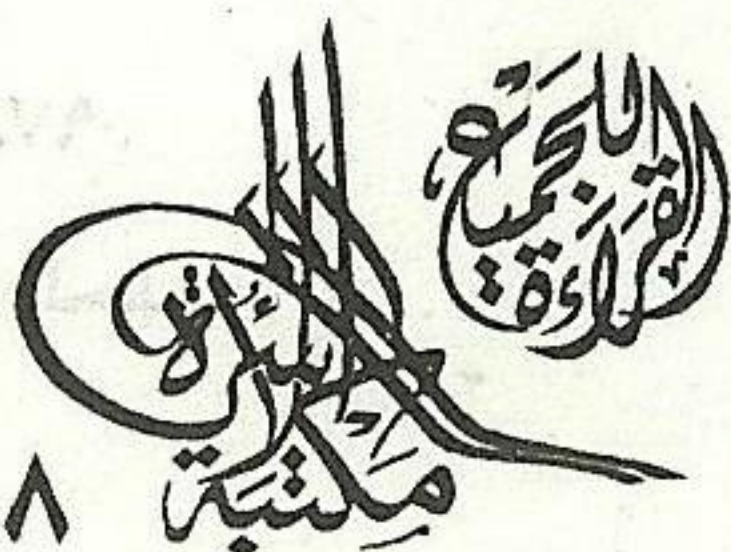 القراءة للجميع
مكتبة الأسرة
٨